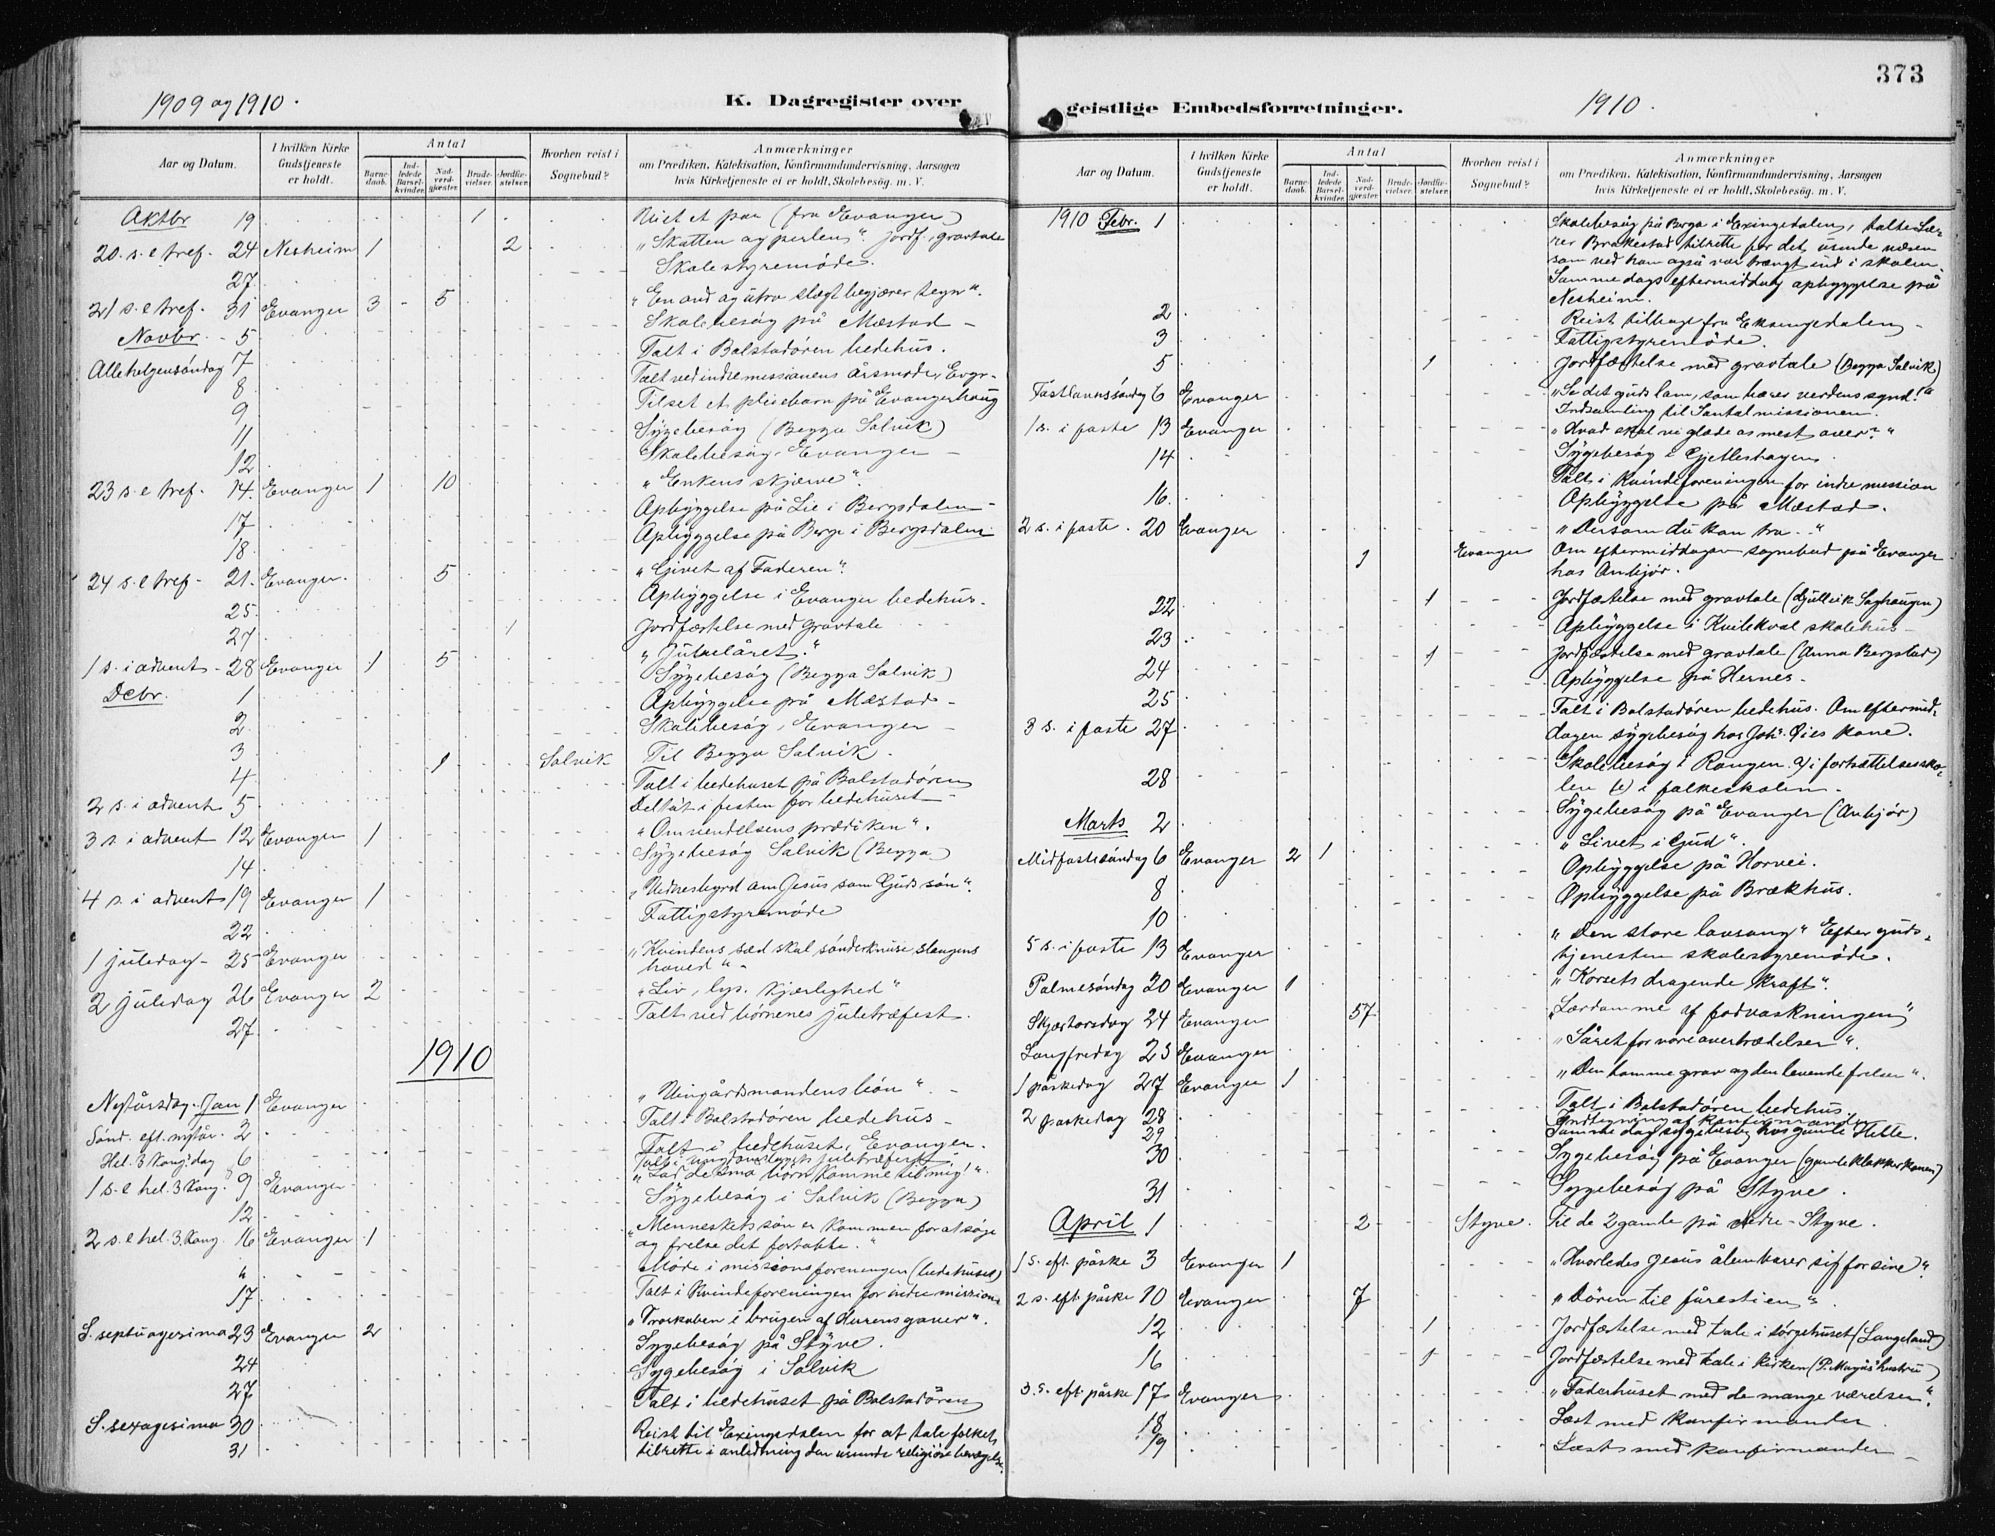 373
1909 og 1910.
K. Dagregister over
geistlige Embedsforretninger.
1910.
Aar og Datum.
I hvilken Kirke Gudstjeneste er holdt.
Antal
Barnedaab.
Indledede Barselkvinder.
Nadverdgjæster.
Brudevielser.
Jordfæstelser.
Hvorhen reist i Sognebud?
Anmærkninger
om Prædiken, Katekisation, Konfirmandundervisning, Aarsagen
hvis Kirketjeneste ei er holdt, Skolebesøg. m. V.
Oktbr 19 1 Viet et par (fra Evanger)
20. s. e tref. 24 Nesheim 1 2 "Skatten og perlen". Jordf., gravtale
27 Skolestyremøde.
21 s. e tref. 31 Evanger 3 5 "En ond og utro slægt begjærer tegn".
Novbr. 5 Skolebesøg på Mæstad
Allehelgensøndag 7 Talt i Bolstadøren bedehus.
8 Talt ved indremissionens årsmøde, Evgr.
9 Tilset et pleiebarn på Evangerhaug
11 Sygebesøg (Begga Salvik)
12 Skolebesøg, Evanger
23 s. e tref. 14. Evanger 1 10 "Enkens skjærv".
17 Opbyggelse på Lie i Bergsdalen
18. Opbyggelse på Berge i Bergsdalen
24 s. e tref. 21. Evanger. 5 "Givet af Faderen"
25. Opbyggelse i Evanger bedehus.
27 1 Jordfæstelse med gravtale
1 s. i advent 28 Evanger 1 5 "Jubelåret."
Debr. 1 Sygebesøg (Begga Salvik)
2 Opbyggelse på Mæstad
3 Skolebesøg, Evanger
4 1 Salvik Til Begga Salvik.
Talt i bedehuset på Bolstadøren
2 s. i advent 5 Deltat i festen for bedehuset
3 s. i advent 12 Evanger 1 "Omvendelsens prædiken".
14 Sygebesøg Salvik (Begga)
4 s. i advent 19 Evanger 1 "Vidnesbyrd om Jesus som Guds søn".
22 Fattigstyremøde
1 juledag 25 Evanger "Kvindens sæd skal sønderknuse slangens
hoved"
2 juledag 26 Evanger 2 "Liv, lys, kjærlighed"
27 Talt ved børnenes juletræfest.
1910
Nytårsdag. Jan 1 Evanger "Vingårdsmandens bøn"
Sønd. eft. nytår. 2 Talt i Bolstadøren bedehus
Hel. 3 kong. dag 6 Talt i bedehuset, Evanger.
1 s. e hel. 3 kong. 9 Evanger "Lad de små børn komme til mig!"
12 Sygebesøg i Salvik (Begga)
2 s. e hel. 3. kong. 16 Evanger 1 "Menneskets søn er kommen for at søge
og frelse det fortabte."
" Møde i missionsforeningen (bedehuset)
17 Talt i kvindeforeningen for indre mission
S. septuagesima 23 Evanger 2 "Troskaben i brugen af Herrens gaver".
24 Sygebesøg på Styve.
27 Sygebesøg i Salvik
S. sexagesima 30 Talt i bedehuset på Bolstadøren
31 Reist til Exingedalen for at tale folket
tilrette i anledning den usunde religiøse bevægelse.
Aar og Datum.
I hvilken Kirke Gudstjeneste er holdt.
Antal
Barnedaab.
Indledede Barselkvinder.
Nadverdgjæster.
Brudevielser.
Jordfæstelser.
Hvorhen reist i Sognebud?
Anmærkninger
om Prædiken, Katekisation, Konfirmandundervisning, Aarsagen
hvis Kirketjeneste ei er holdt, Skolebesøg. m. V.
1910 Febr. 1 Skolebesøg på Berge i Exingedalen, talte Læ-
rer Brakestad tilrette for det usunde væsen
som ved ham også var trængt ind i skolen.
Samme dags eftermiddag opbyggelse på
Nesheim.
2 Reist tilbage fra Eksingedalen
3 Fattigstyremøde.
5 1 Jordfæstelse med gravtale (Begga Salvik)
Fastelavnssøndag 6 Evanger "Se det guds lam, som bærer verdens synd!"
Indsamling til Santalmissionen.
1 s. i faste 13 Evanger "Hvad skal vi glæde os mest over?"
14 Sygebesøg i Gjelleshagen.
Talt i kvindeforeningen for indre mission
16. Opbyggelse på Mæstad.
2 s. i faste. 20 Evanger "Dersom du kan tro."
1 Evanger Om eftermiddagen sognebud på Evanger
hos Anbjør.
22 1 Jordfæstelse med gravtale
23 Opbyggelse i Kvilekval skolehus
24 1 Jordfæstelse med gravtale (Anna Bergstad)
25 Opbyggelse på Hernes.
3 s. i faste 27 Talt i Bolstadøren bedehus. Om eftermid-
dagen sygebesøg hos Johs. Øies kone.
28 Skolebesøg i Rongen a) i fortsættelsessko-
len b) i folkeskolen.
Marts 2 Sygebesøg på Evanger (Anbjør)
Midfastesøndag 6 Evanger 2 1 "Livet i Gud".
8 Opbyggelse på Horvei.
10 Opbyggelse på Brækhus.
5 s. i faste 13 Evanger "Den store lovsang" Efter guds-
tjenesten skolestyremøde.
Palmesøndag 20 Evanger 1 "Korsets dragende kraft".
Skjærtorsdag 24 Evanger 57 "Lærdomme af fodvaskningen"
Langfredag 25 Evanger "Såret for vore overtrædelser".
1 påskedag 27 Evanger 1 "Den tomme grav og den levende frelser".
2 påskedag 28 Talt i Bolstadøren bedehus.
29 Indtegning af konfirmander
Samme dag sygebesøg hos gamle Helle.
30 Sygebesøg på Evanger (gamle klokkerkonen)
31 Sygebesøg på Styve.
April 1 2 Styve. Til de 2 gamle på Nedre-Styve.
1 s. eft. påske 3 Evanger 1 "Hvorledes Jesus åbenbarer sig for sine".
2 s. eft. påske 10 Evanger 7 "Døren til fårestien".
12 1 Jordfæstelse med tale i sørgehuset (Langeland)
16 1 Jordfæstelse med tale i kirken (P. Mugås hustru)
3. s. eft. påske 17 Evanger "Faderhuset med de mange værelser".
18 Læst med konfirmander
19 Læst med konfirmander